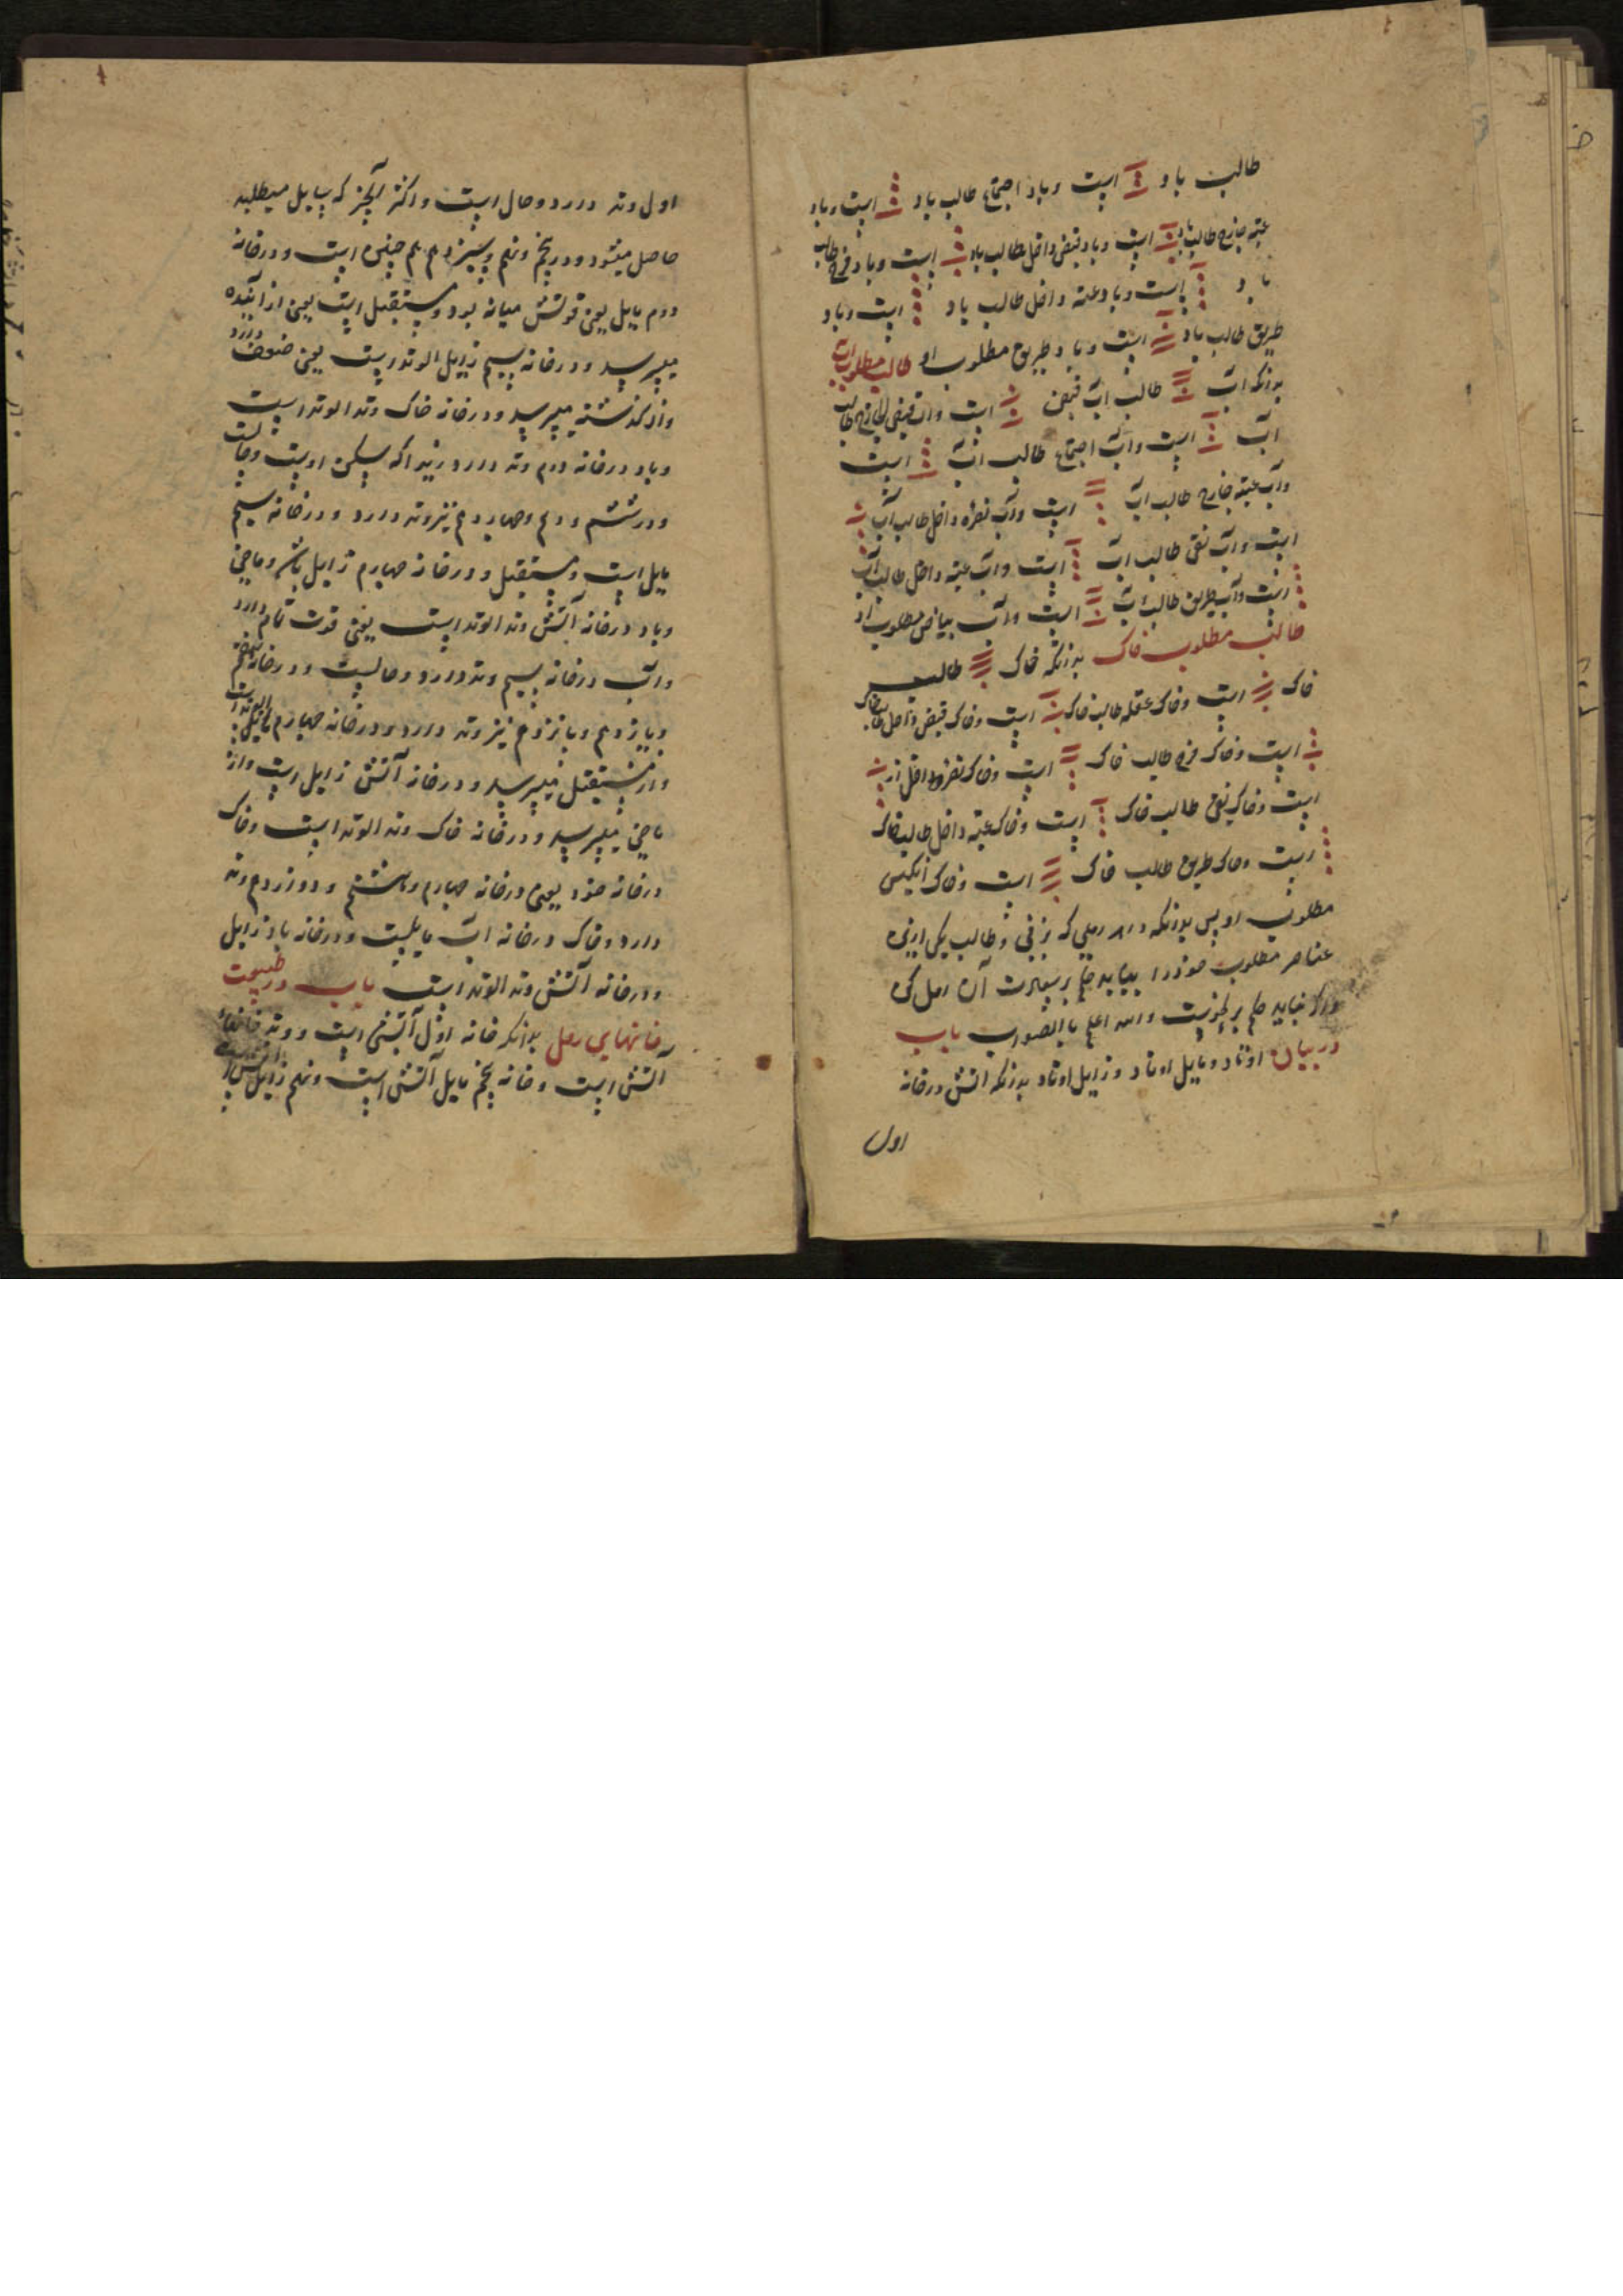 طالب باد است وباد اجتماع طالب باد است وباد
عتبه خارج طالب باد است وباد قبض داخل طالب باد است وباد فرح طالب
باد است وباد عتبه داخل طالب باد است وباد
طریق طالب باد است وباد طریق مطلوب او طالب مطلوب اب
بدانکه اب طالب اب قبض است واب قبض الخارج طالب
اب است واب اجتماع طالب اب است
واب عتبه خارج طالب اب است واب نصره داخل طالب اب
است واب نقی طالب اب است واب عتبه داخل طالب اب
است واب طریق طالب اب است واب بیاض مطلوب او
طالب مطلوب خاک بدانکه خاک طالب
خاک است وخاک عقله طالب خاک است وخاک قبض داخل طالب خاک
است وخاک فرح طالب خاک است وخاک نصره داخل
است وخاک نقی طالب خاک است وخاک عتبه داخل طالب خاک
است وخاک طریق طالب خاک است وخاک انکیس
مطلوب او پس بدانکه در رملی که بزنی وطالب یکی ازین
عناصر مطلوب خود را بیابد حکم بر سعادت آن رمل کن
واکر نیابد حکم بر نحوست والله اعلم باالصواب باب
در بیان اوتاد ومایل اوتاد وزایل اوتاد بدانکه اتش درخانه
اول
اول وتد دارد وحال است واکثر آنچیز که سایل میطلبد
حاصل میشود ودر پنجم ونهم وسیزدهم هم چنین است ودرخانه
دوم مایل یعنی قوتش میانه بود ومستقبل است یعنی از آینده
میپرسد ودرخانه سیم زایل الوتد است یعنی ضعف دارد
واز کذشته میپرسد ودرخانه خاک وتد الوتد است
وباد درخانه دوم وتد دارد زیرا که مسکن اوست وحالست
ودر ششم ودهم وچهاردهم نیز وتد دارد ودرخانه سیم
مایل است ومستقبل ودرخانه چهارم زایل باشد وماضی
وباد درخانه آتش وتد الوتد است یعنی قوت تمام دارد
واب درخانه سیم وتد دارد وحالست ودرخانه هفتم
ویازدهم وپانزدهم نیز وتد دارد ودرخانه چهارم مایل
واز مستقبل میپرسد ودرخانه آتش زایل است واز
ماضی میپرسد ودرخانه خاک وتد الوتد است وخاک
درخانه خود یعنی درخانه چهارم وهشتم ودوازدهم وتد
دارد وخاک درخانه اب مایلست ودرخانه باد زایل
ودرخانه آتش وتد الوتد است باب در طبیعت
خانهای رمل بدانکه خانه اول آتشی است ووتد
اتش است وخانه پنجم مایل آتش است ونهم زایل